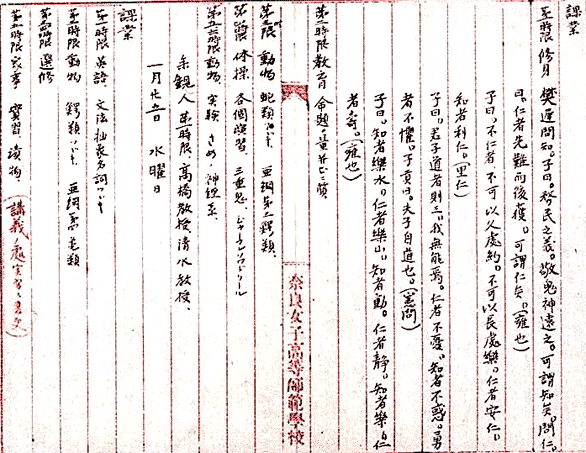 課業
第一時限 修身 樊遲問知。子曰。務民之義。敬鬼神遠之。可謂知矣。問仁。
曰。仁者先難而後獲。可謂仁矣。(雍也)
子曰。不仁者不可以久處約。不可以長處樂。仁者安仁。
知者利仁。(里仁)
子曰。君子道者則三。我無能焉。仁者不憂。知者不惑。勇
者不懼。子貢曰。夫子自道也。(憲問)
子曰。知者樂水。仁者樂山。知者動。仁者静。知者樂。仁
者壽。(雍也)
第二時限 教育
奈良女子高等師範學校
第三時限 動物 蛇類 亞綱第二鰐類、
第四時限 体操 各個演習、
第五六時限 動物、実験 さめ 神経系、
参観人 第一時限、高橋教授、清水教授、
一月廿五日 水曜日
課業
第一時限 英語、文法 抽象名詞
第二時限 動物 鰐類 亞綱
第四時限 選修
第五六時限 家事、實習、讀物、